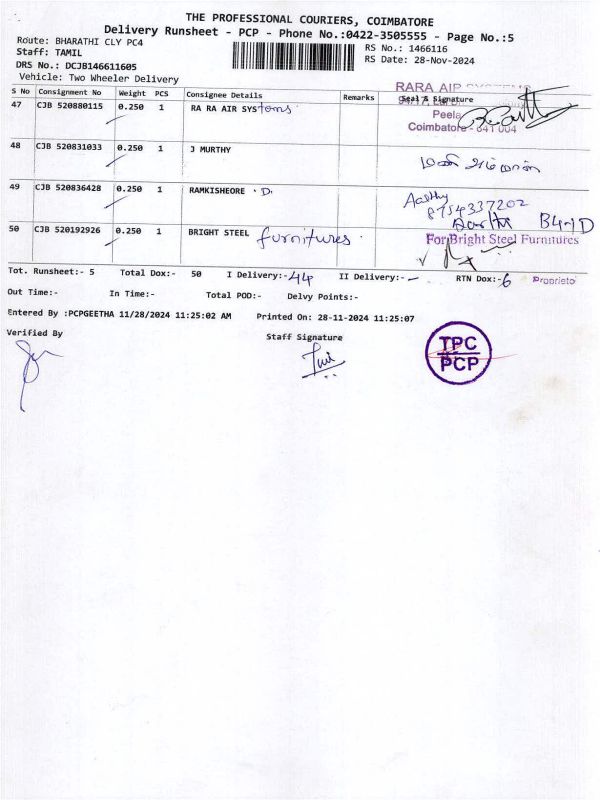 THE PROFESSIONAL COURIERS, COIMBATORE
Delivery Runsheet - PCP - Phone No.:0422-3505555 - Page No.:5
Route: BHARATHI CLY PC4
RS No.: 1466116
Staff: TAMIL
RS Date: 28-Nov-2024
DRS No.: DCJB146611605
Vehicle: Two Wheeler Delivery
S No Consignment No Weight PCS Consignee Details Remarks Seal & Signature
RARA AIR SYSTEMS
47 CJB 520880115 0.250 1 RA RA AIR SYStems
Peela
Coimbatore - 641 004
48 CJB 520831033 0.250 1 J MURTHY
49 CJB 520836428 0.250 1 RAMKISHEORE . D.
8754337202
B4-1D
50 CJB 520192926 0.250 1 BRIGHT STEEL furnitures
For Bright Steel Furnitures
Tot. Runsheet:- 5 Total Dox:- 50 I Delivery:-44 II Delivery:-- RTN Dox:-6 Proprieto
Out Time:- In Time:- Total POD:- Delvy Points:-
Entered By :PCPGEETHA 11/28/2024 11:25:02 AM Printed On: 28-11-2024 11:25:07
Verified By Staff Signature
TPC
PCP